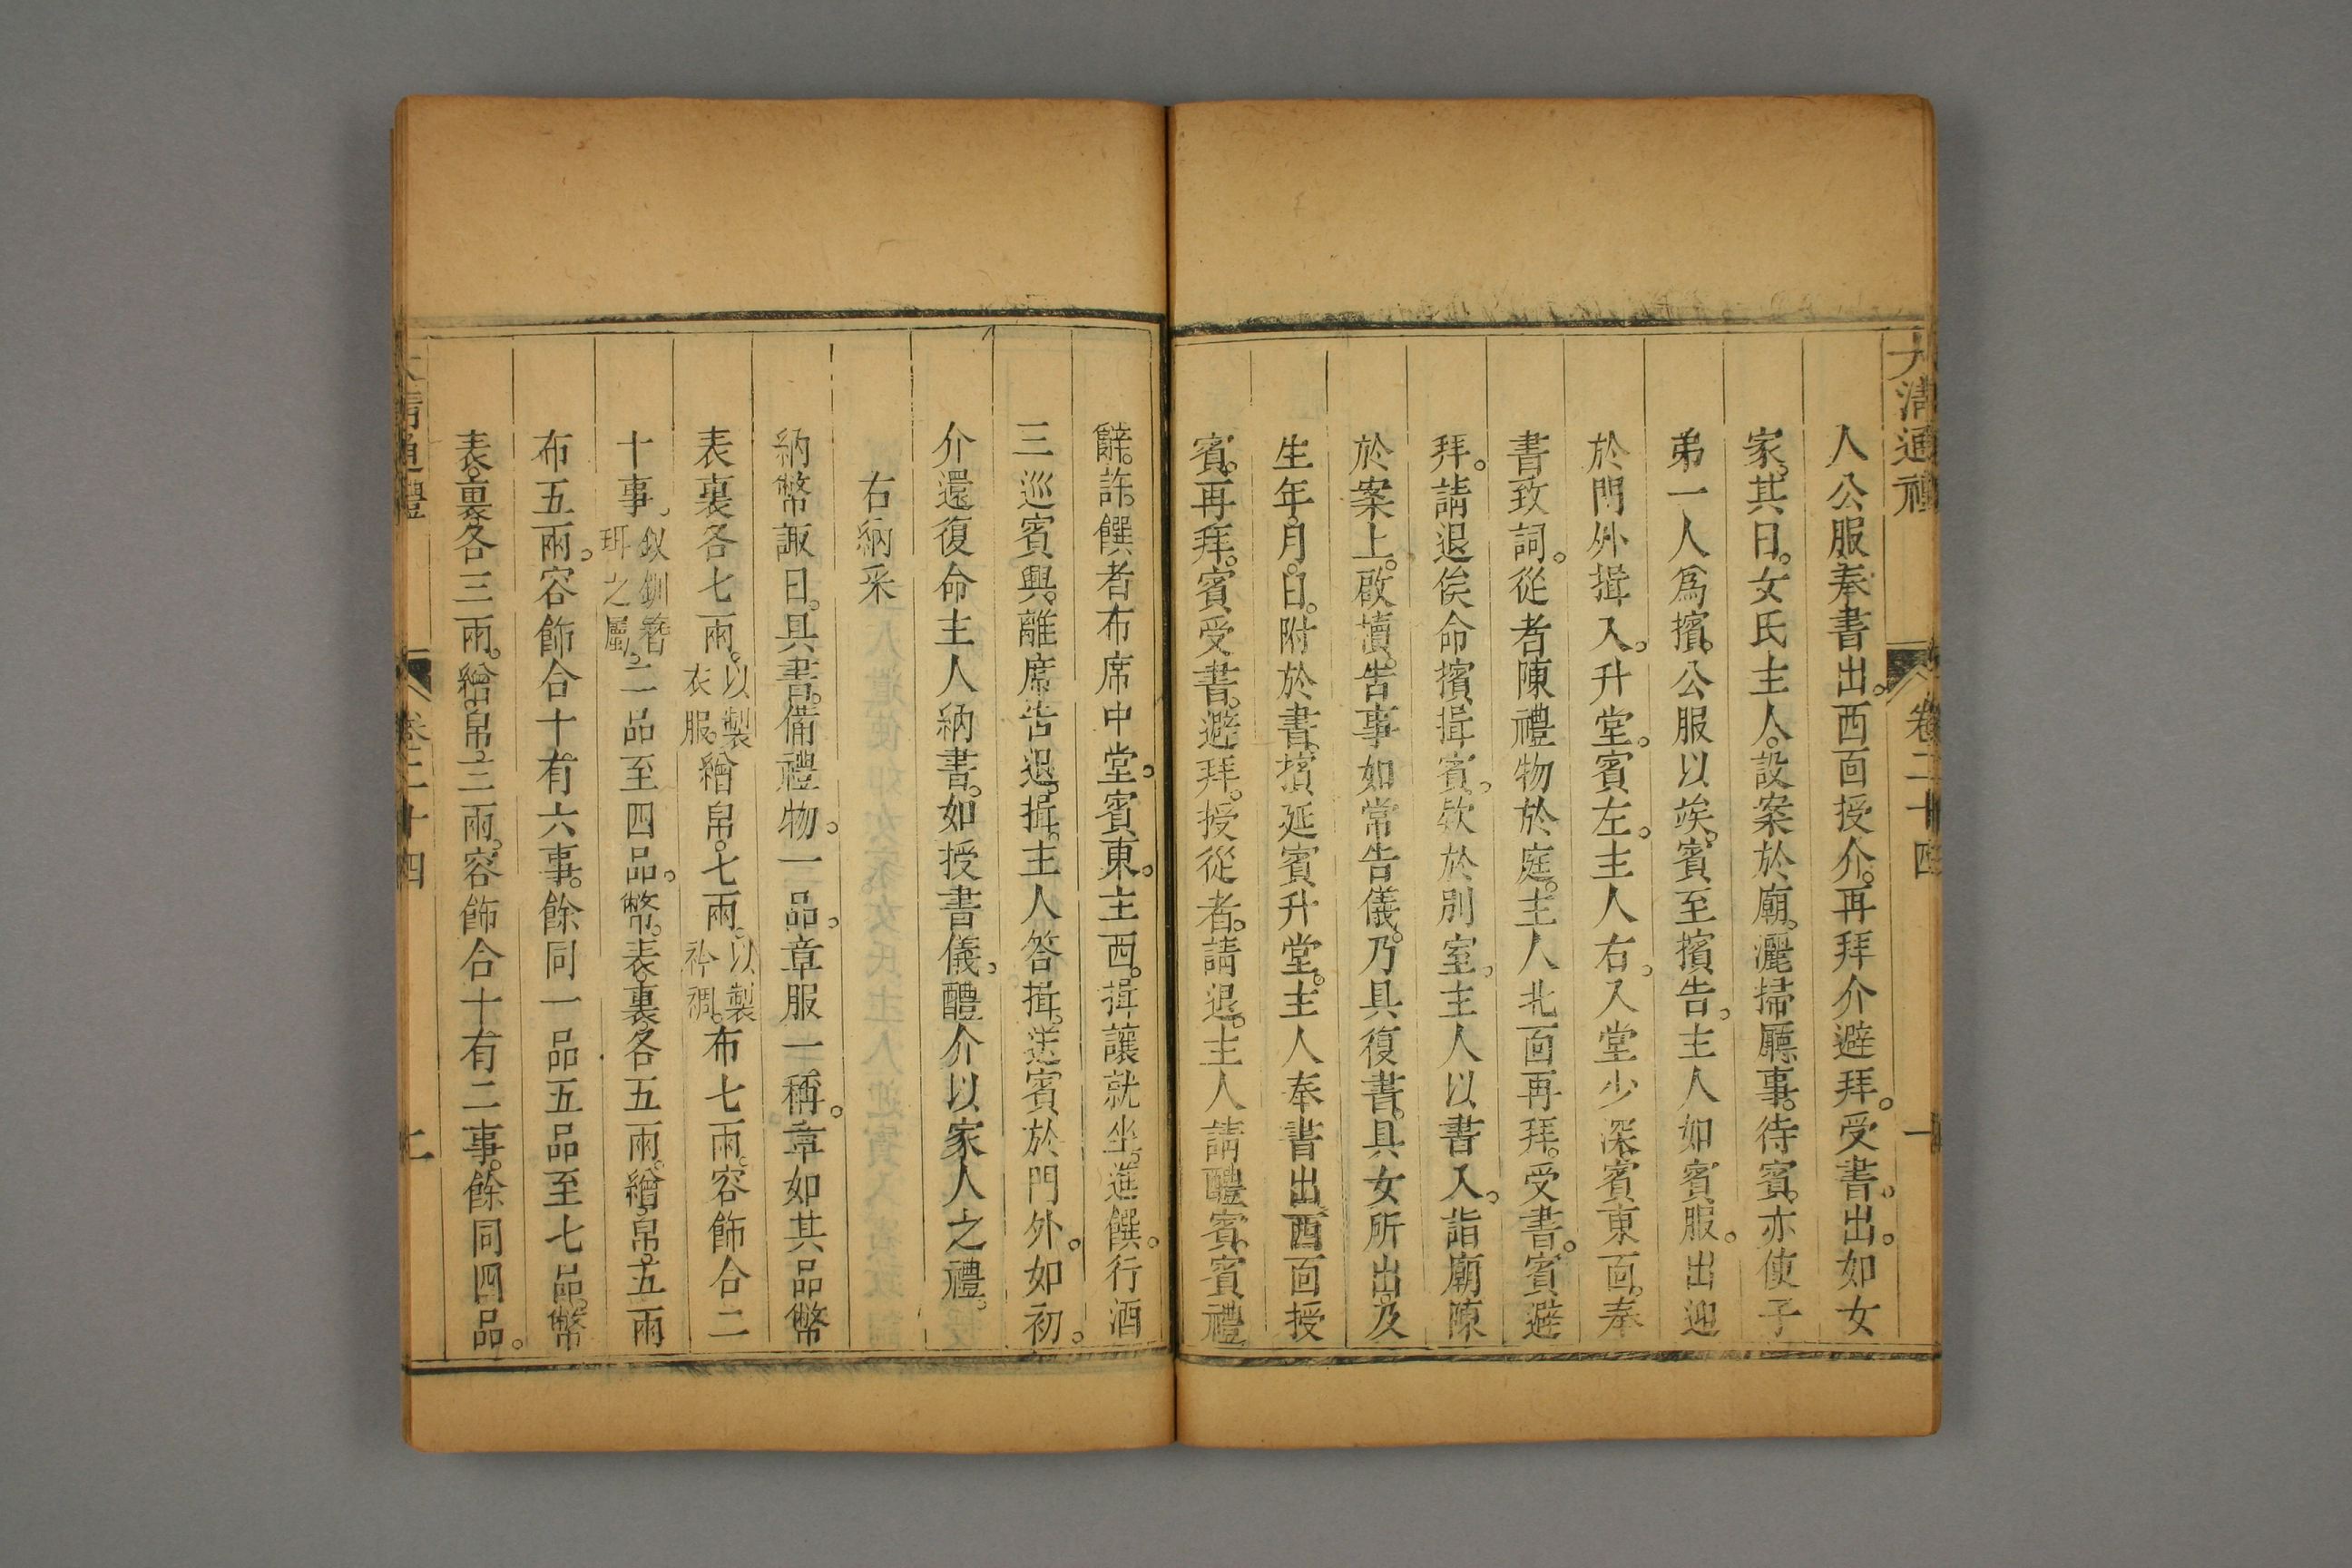 大清通禮 卷二十四
人公服奉書出。西面授介。再拜介避拜。受書。出。如女
家。其日。女氏主人。設案於廟。灑掃廳事。待賓。亦使子
弟一人爲擯。公服以竢。賓至擯告。主人如賓服。出迎
於門外揖入。升堂。賓左。主人右。入堂少深賓東面。奉
書致詞。從者陳禮物於庭。主人北面再拜。受書。賓避
拜。請退俟命擯揖賓。欵於別室。主人以書入。詣廟陳
於案上。啟櫝。告事如常告儀。乃具復書。具女所出。及
生年。月。日。附於書。擯延賓升堂。主人奉書出西面授
賓。再拜。賓受書。避拜。授從者。請退。主人請醴賓。賓禮
辭。許。饌者布席中堂。賓東。主西。揖讓就坐。進饌。行酒
三巡賓興。離席告退。揖。主人答揖。送賓於門外。如初。
介還復命主人納書。如授書儀。醴介以家人之禮。
右納采
納幣諏日。具書。備禮物。一品。章服一稱。章如其品幣
表裏各七兩。以製衣服。繒帛。七兩。以製衿裯。布七兩。容飾合二
十事。釵釧簪珥之屬。二品至四品。幣。表。裏。各五兩。繒。帛。五兩
布五兩。容飾合十有六事。餘同一品五品至七品。幣
表。裏各三兩。繒。帛。三兩。容飾合十有二事。餘同四品。
大清通禮 卷二十四